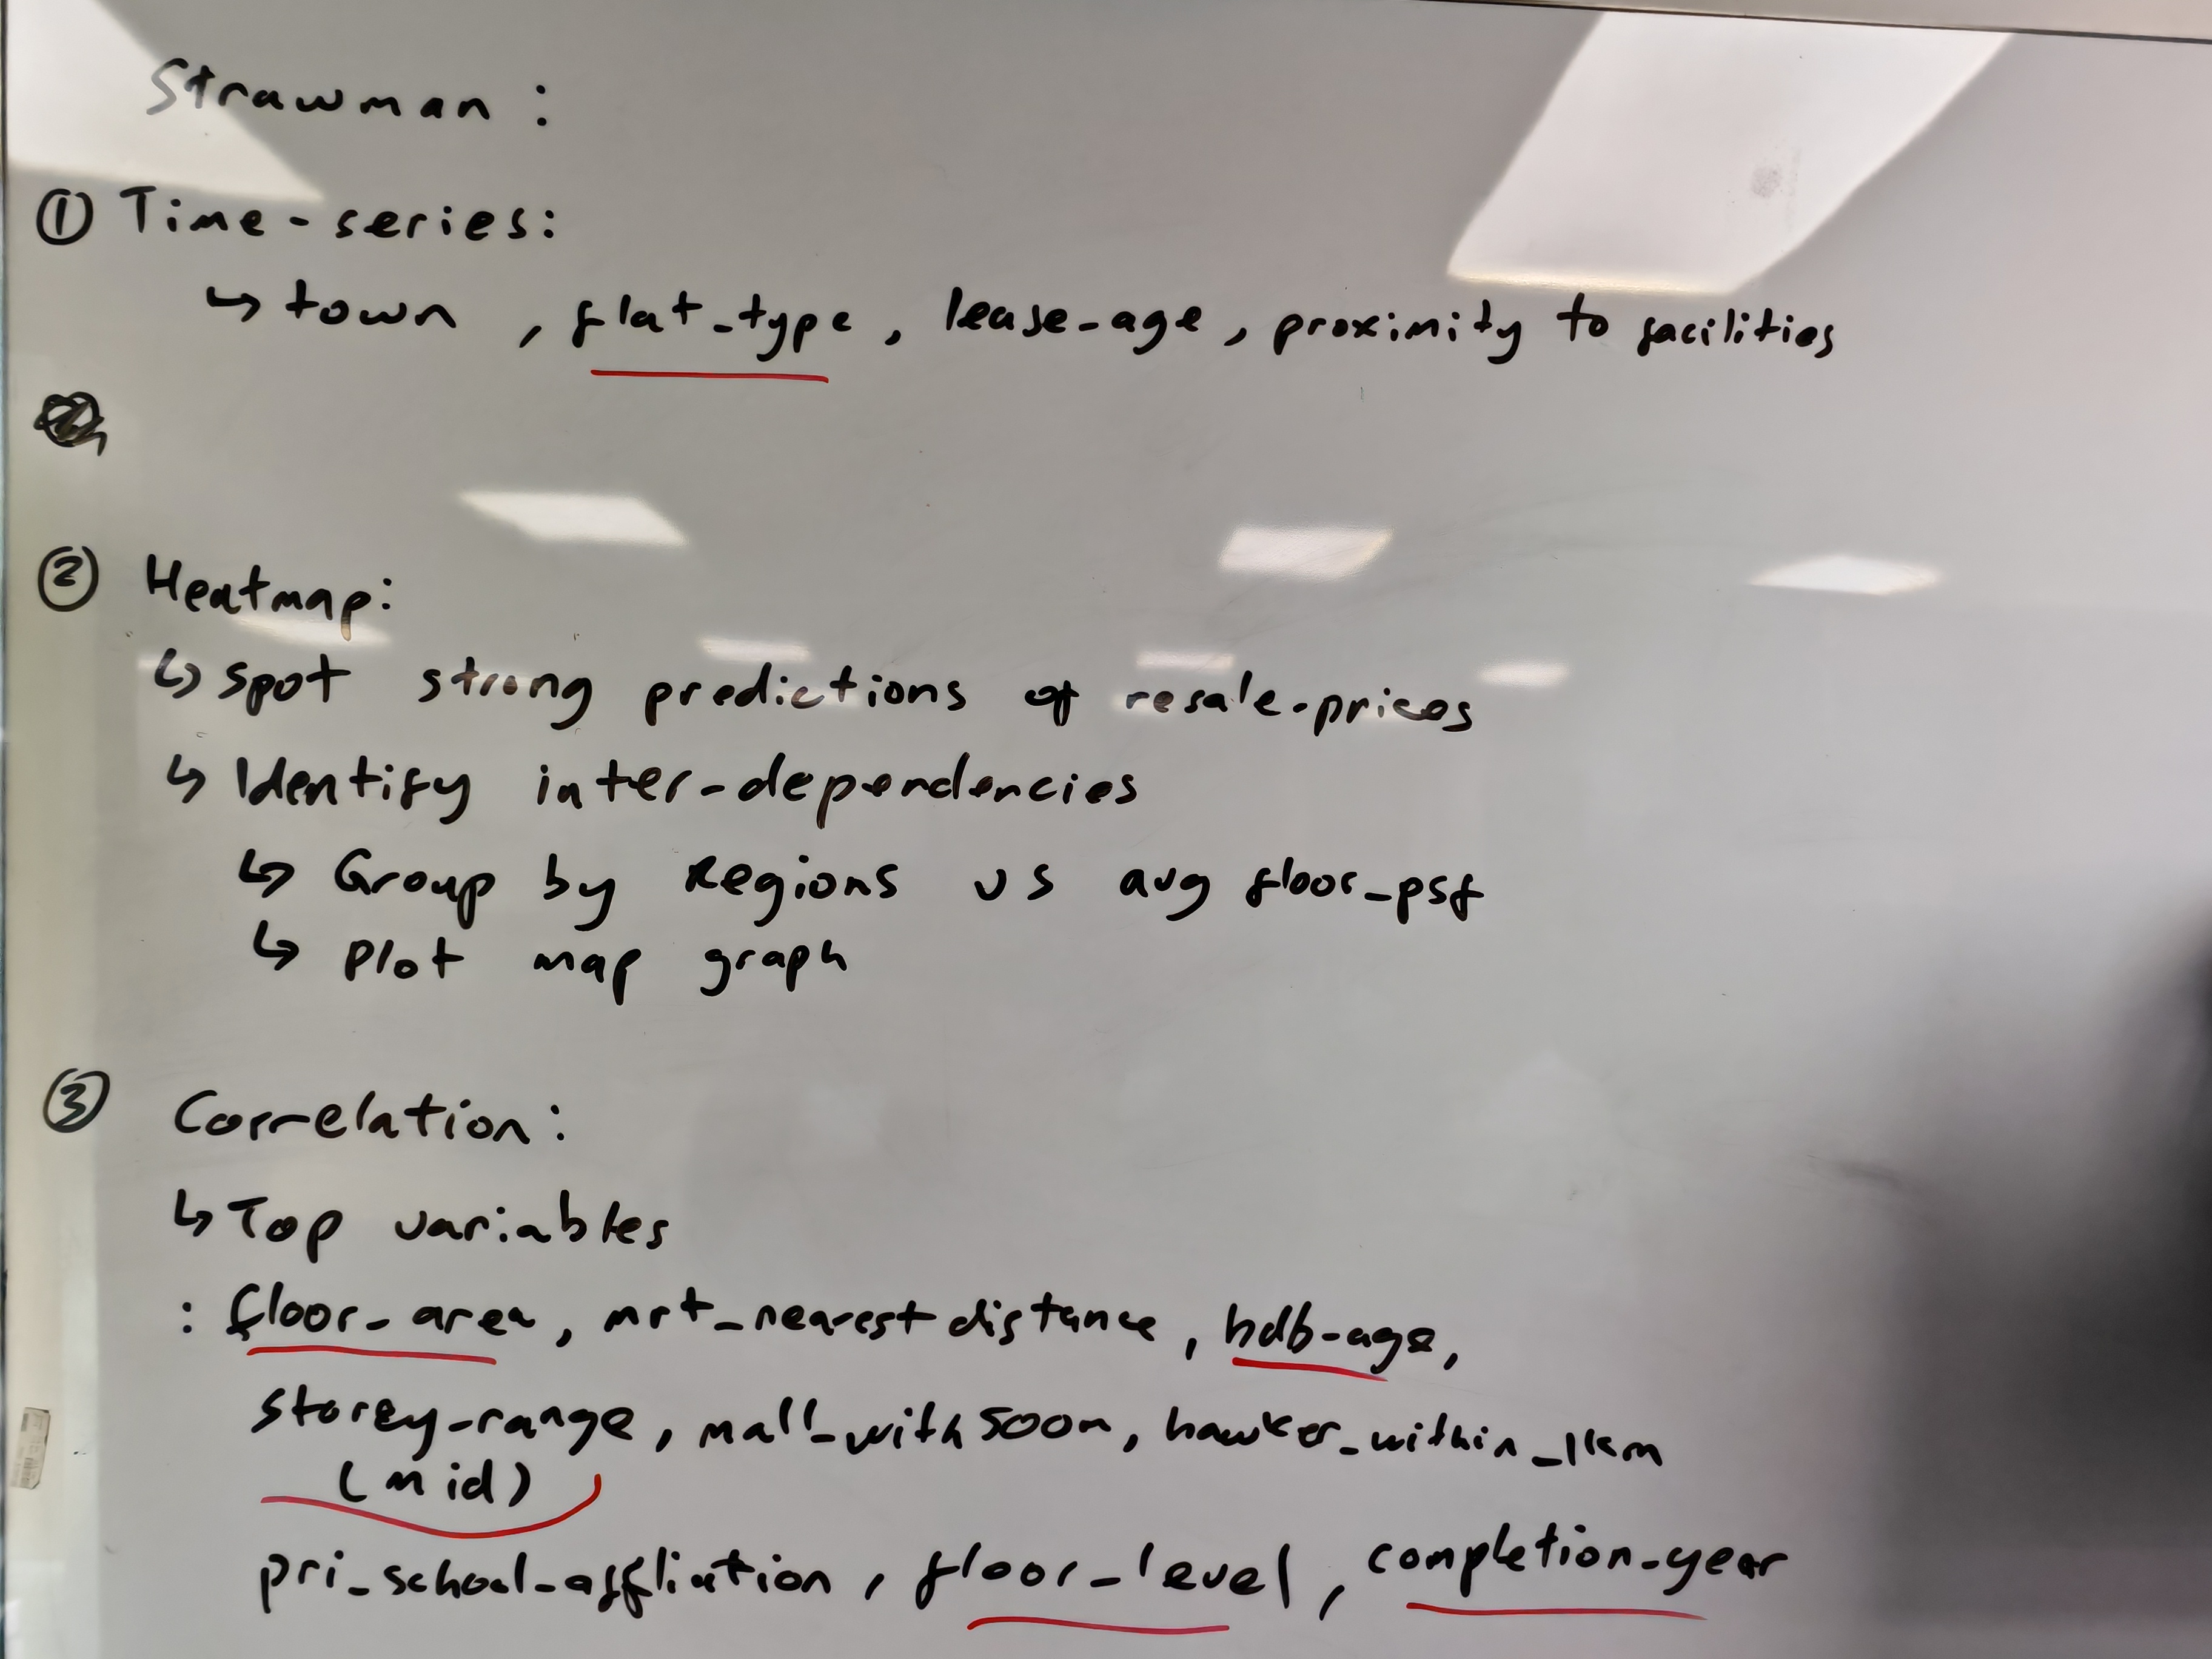 Strawman :
① Time-series:
↳ town , flat_type , lease-age , proximity to facilities
② Heatmap:
↳ spot strong predictions of resale-prices
↳ Identify inter-dependencies
↳ Group by Regions vs avg floor_psf
↳ plot map graph
③ Correlation :
↳ Top variables
: floor-area , mrt_nearest distance , hdb-age ,
storey-range , mall_with 500m , hawker_within_1km
(mid)
pri_school-affliation , floor_level , completion-year